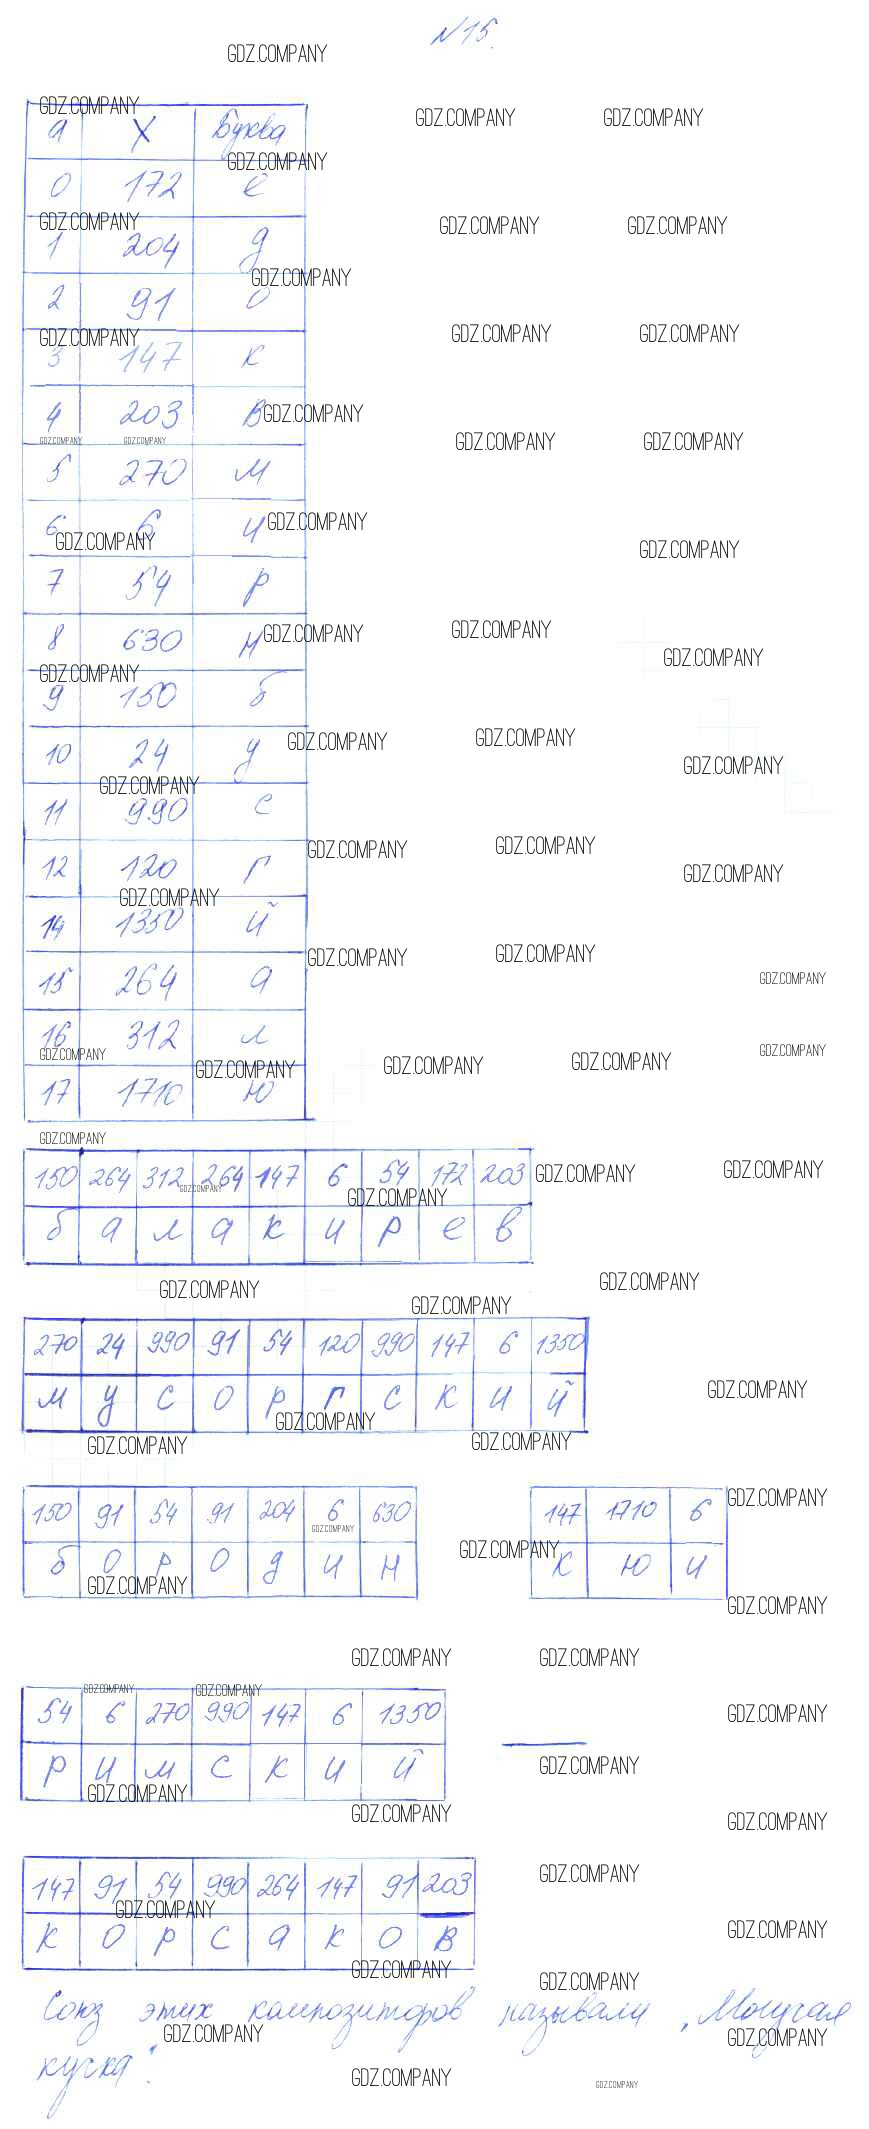 N 15.
a X Буква
0 172 е
1 204 д
2 91 о
3 147 к
4 203 в
5 270 м
6 6 и
7 54 р
8 630 н
9 150 б
10 24 у
11 990 с
12 120 г
14 1350 й
15 264 а
16 312 л
17 1710 ю
150 264 312 264 147 6 54 172 203
б а л а к и р е в
270 24 990 91 54 120 990 147 6 1350
м у с о р г с к и й
150 91 54 91 204 6 630
б о р о д и н
147 1710 6
к ю и
54 6 270 990 147 6 1350
р и м с к и й
147 91 54 990 264 147 91 203
к о р с а к о в
Союз этих композиторов называли „Могучая
кучка".
GDZ.COMPANY